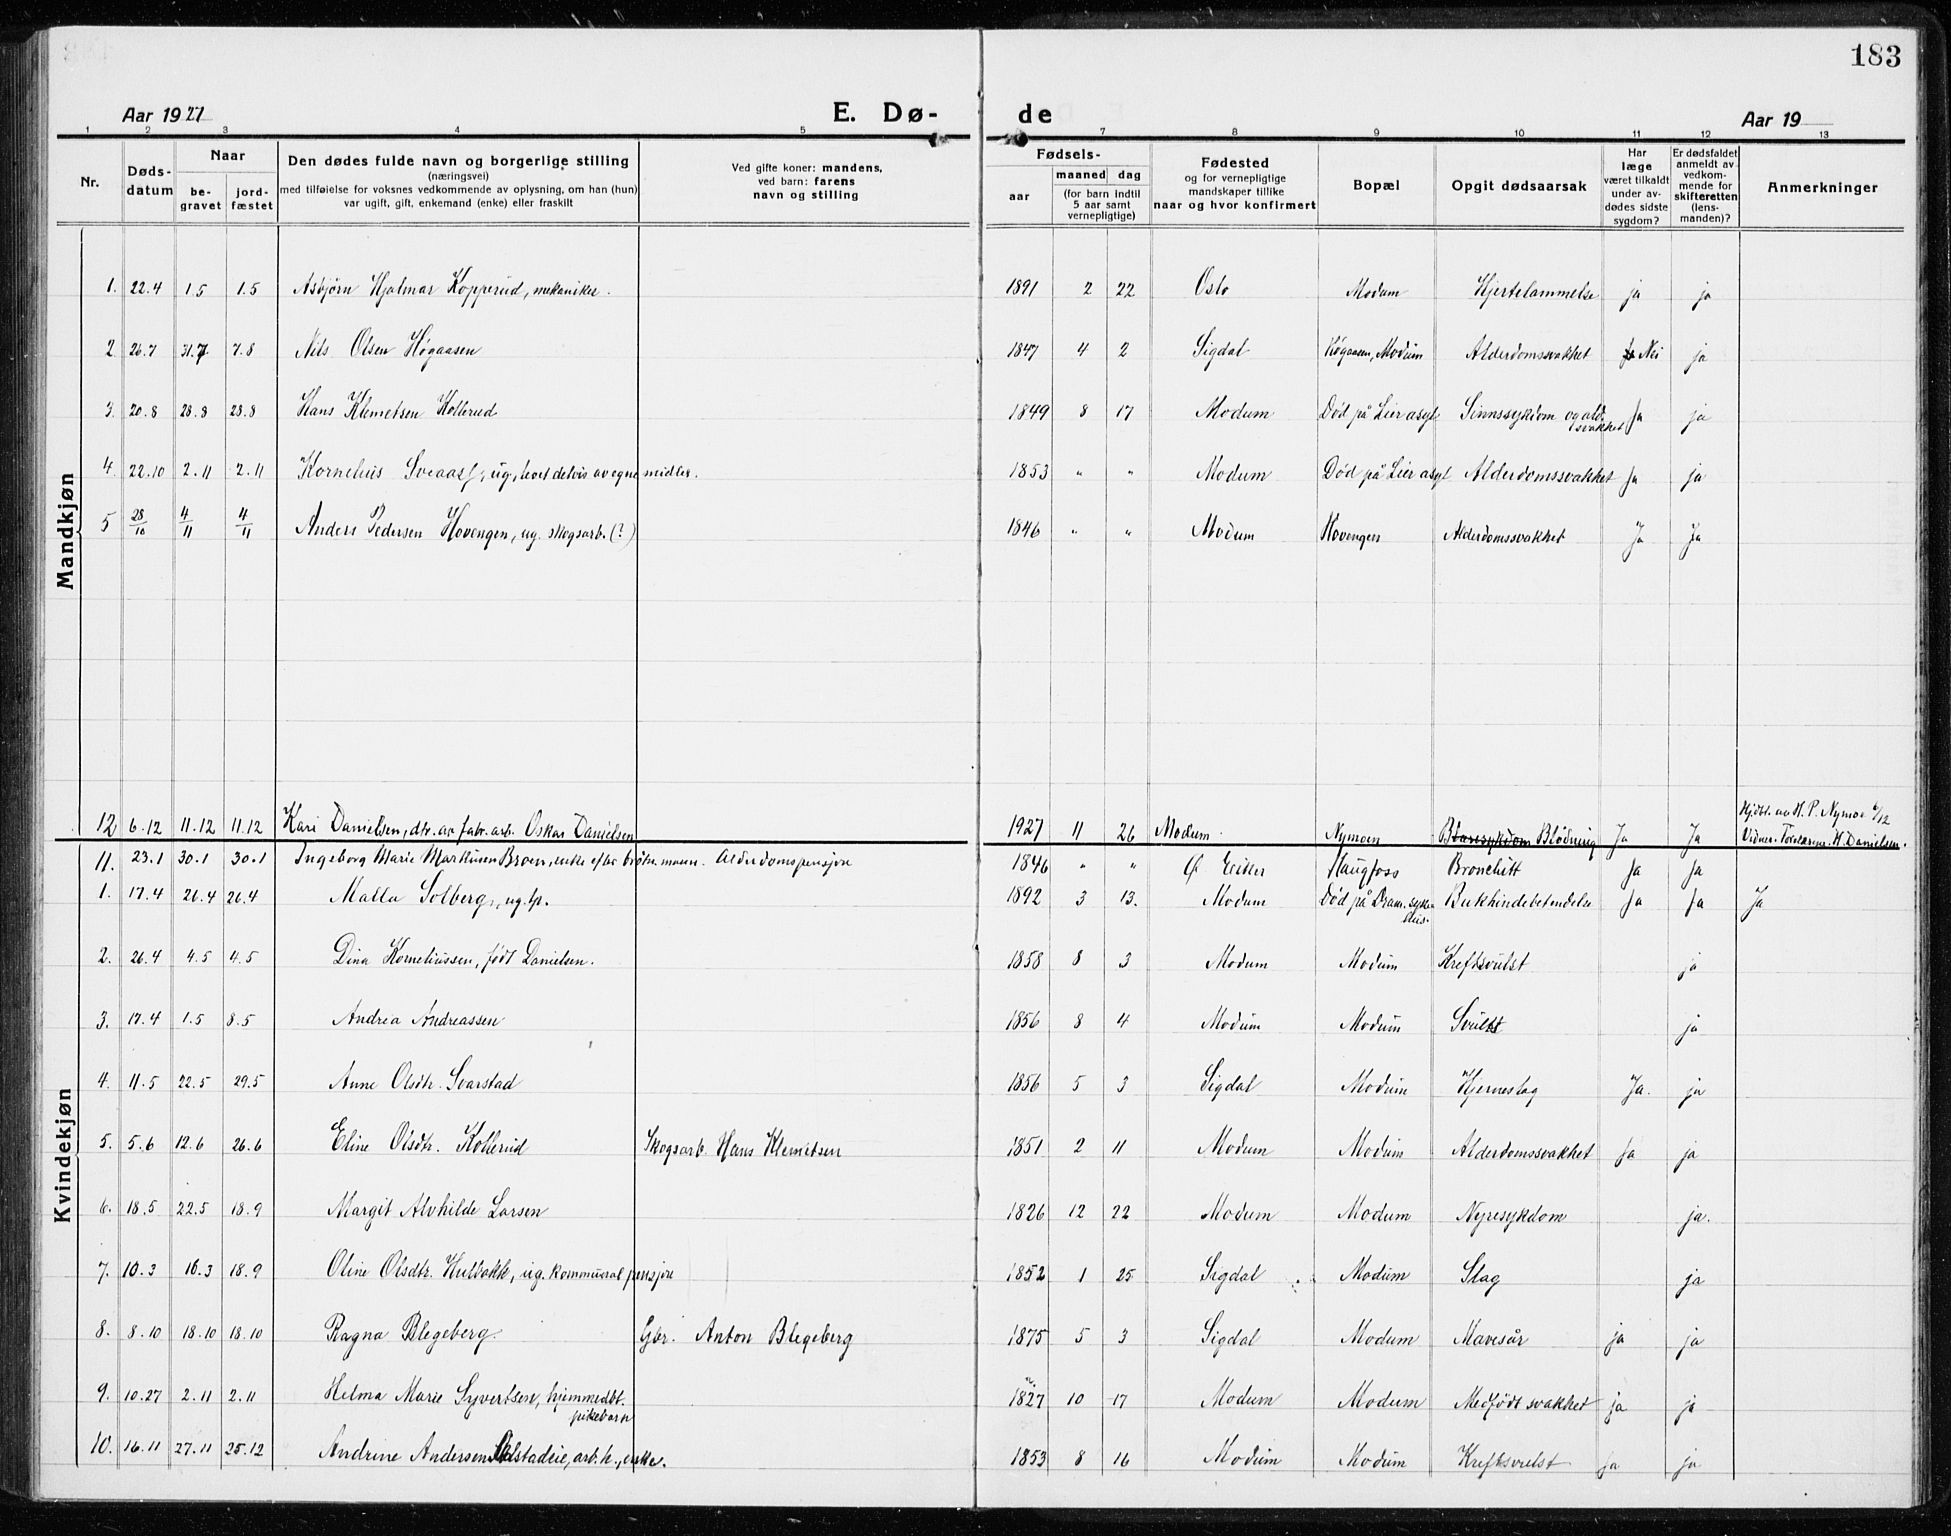 183
Aar 1927 E. Dø- de Aar 19
1 2 3 4 5 7 8 9 10 11 12 13
Nr. Døds-datum Naar be-gravet jord-fæstet Den dødes fulde navn og borgerlige stilling (næringsvei) med tilføielse for voksnes vedkommende av oplysning, om han (hun) var ugift, gift, enkemand (enke) eller fraskilt Ved gifte koner: mandens, ved barn: farens navn og stilling Fødsels- aar maaned dag (for barn indtil 5 aar samt vernepligtige) Fødested og for vernepligtige mandskaper tillike naar og hvor konfirmert Bopæl Opgit dødsaarsak Har læge været tilkaldt under av-dødes sidste sygdom? Er dødsfaldet anmeldt av vedkom-mende for skifteretten (lens-manden)? Anmerkninger
Mandkjøn
1. 22.4 1.5 1.5 Asbjørn Hjalmar Kopperud, mekaniker. 1891 2 22 Oslo Modum Hjertelammelse ja ja
2. 26.7 31.7 7.8 Nils Olsen Högaasen 1847 4 2 Sigdal Högaasen, Modum Alderdomssvakhet Nei ja
3. 20.8 28.8 28.8 Hans Klemetsen Kollerud 1849 8 17 Modum Död på Lier asyl Sinnssykdom og ald. svakhet Ja ja
4. 22.10 2.11 2.11 Kornelius Sveaas, ug, levet delvis av egne midler. 1853 " " Modum Död på Lier asyl Alderdomssvakhet Ja ja
5 28/10 4/11 4/11 Anders Pedersen Hovengen, ug. skogsarb. (?) 1846 " " Modum Hovengen Alderdomssvakhet Ja Ja
12 6.12 11.12 11.12 Kari Danielsen, dtr. av fabr. arb. Oskar Danielsen 1927 11 26 Modum. Nymoen Blödning Ja Ja Hjdbt. av H. P. Nymoe 6/12
Vidner: Foreldrene. H. Danielsen.
Kvindekjøn
11. 23.1 30.1 30.1 Ingeborg Marie Markusen Broen, enke efter mann. Alderdomspensjon 1846 " " Ø. Eiker Haugfoss Bronchitt Ja Ja
1. 17.4 26.4 26.4 Malla Solberg, ug. tp. 1892 3 13. Modum Död på Dram. syke-hus. Bukhindebetendelse Ja Ja Ja
2. 26.4 4.5 4.5 Dina Korneliussen, født Danielsen. 1858 8 3 Modum Modum Kreftsvulst ja
3. 17.4 1.5 8.5 Andrea Andreassen 1856 8 4 Modum Modum Svulst ja
4. 11.5 22.5 29.5 Anne Olsdtr. Svarstad 1856 5 3 Sigdal Modum Hjerneslag Ja. ja
5. 5.6 12.6 26.6 Eline Olsdtr. Kollerud Skogsarb. Hans Klemetsen 1851 2 11 Modum Modum Alderdomssvakhet Ja ja
6. 18.5 22.5 18.9 Margit Alvhilde Larsen 1826 12 22 Modum Modum Nyresykdom ja.
7. 10.3 16.3 18.9 Oline Olsdtr. Hulbakk, ug. kommunal pensjon 1852 1 25 Sigdal Modum Slag ja
8. 8.10 18.10 18.10 Ragna Blegeberg. Gbr. Anton Blegeberg 1875 5 3 Sigdal Modum Mavesår ja ja
9. 10.27 2.11 2.11 Helma Marie Syvertsen, hjemmedbt. pikebarn 1827 10 17 Modum Modum Medfödt svakhet ja ja
10. 16.11 27.11 25.12 Andrine Andersen arb. k., enke. 1853 8 16 Modum Modum Kreftsvulst ja ja